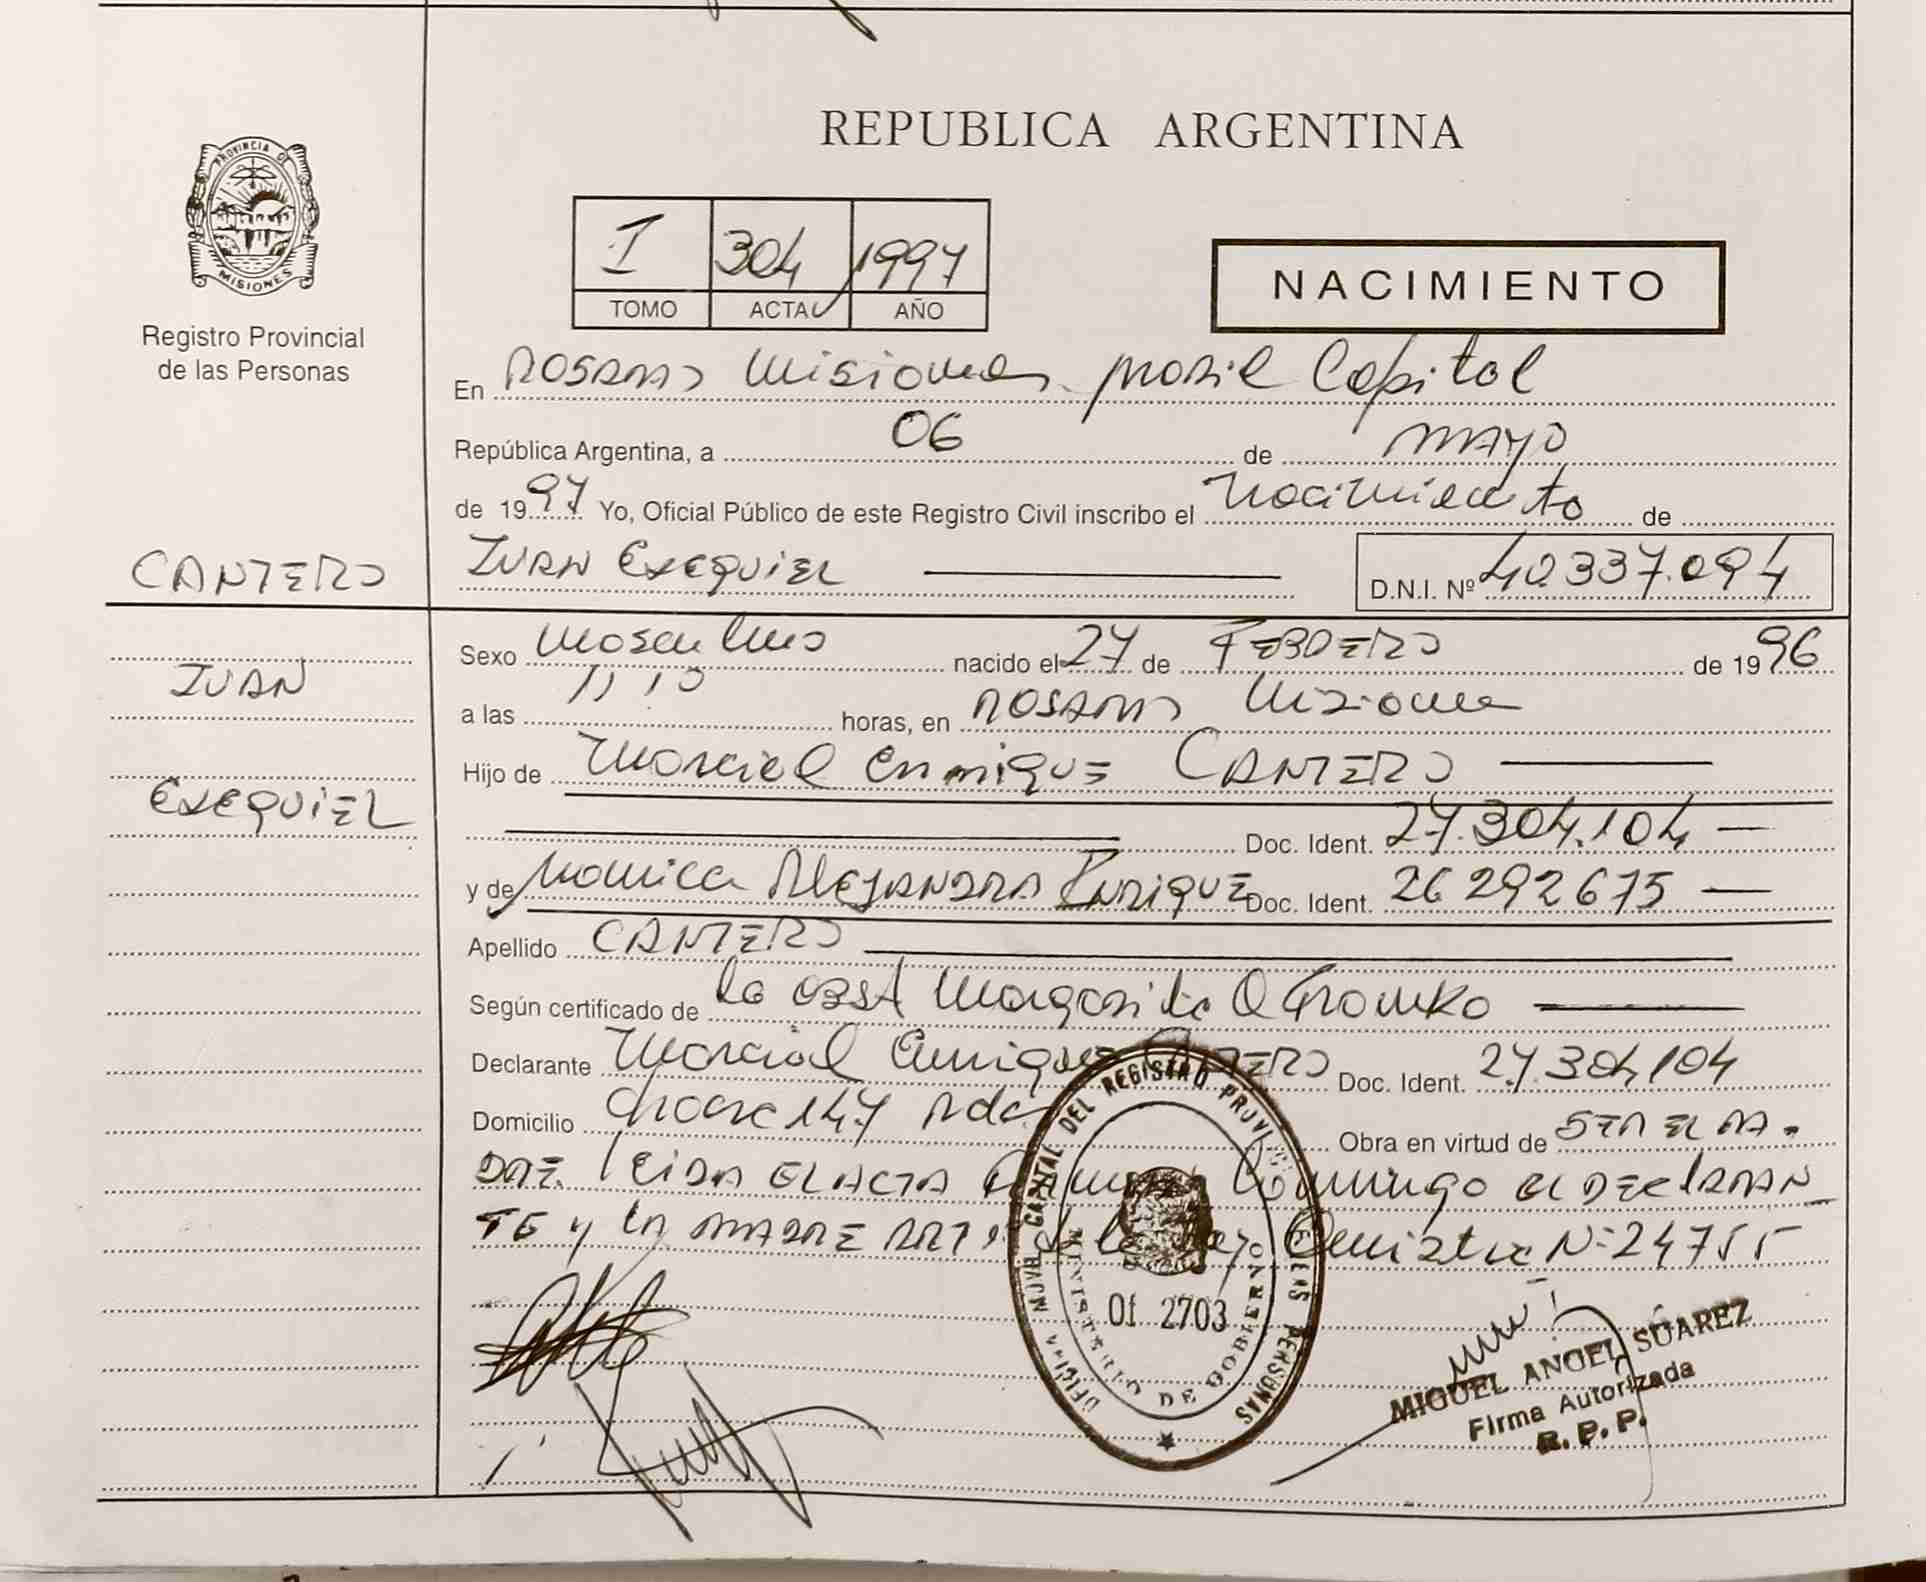 REPUBLICA ARGENTINA
PROVINCIA DE MISIONES
Registro Provincial
de las Personas
I 304 1997
TOMO ACTA AÑO
NACIMIENTO
En Posadas Misiones movil Capital
República Argentina, a 06 de MAYO
de 1997 Yo, Oficial Público de este Registro Civil inscribo el Nacimiento de
CANTERO
JUAN EXEQUIEL D.N.I. Nº 40.337.094
JUAN
EXEQUIEL
Sexo Masculino nacido el 27 de FEBRERO de 1996
a las horas, en POSADAS Misiones
Hijo de Marcial Enrique CANTERO
Doc. Ident. 27.304.104
y de Monica ALEJANDRA ENRIQUE Doc. Ident. 26 292 675
Apellido CANTERO
Según certificado de la OBST Margarita
Declarante Marcial Enrique CANTERO Doc. Ident. 27.304.104
Domicilio 147 Obra en virtud de SER EL PA-
DRE. LEIDA EL ACTA EL DECLARAN
TE y LA MADRE ART de la Ley Nº 24755
OFICINA MOVIL CAPITAL DEL REGISTRO PROVINCIAL DE LAS PERSONAS
MINISTERIO DE GOBIERNO
Of 2703
MIGUEL ANGEL SUAREZ
Firma Autorizada
R. P. P.